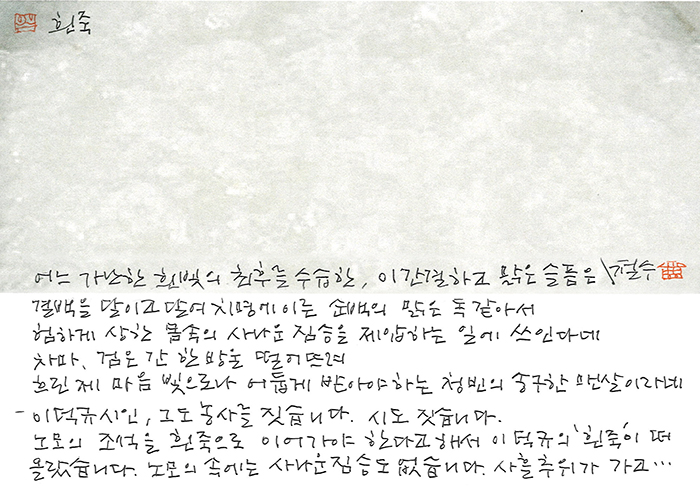 흰죽
어느 가난한 흰빛의 최후를 수습한, 이 간결하고 묽은 슬픔은
철수
결백을 달이고 달여 치명에 이른 순백의 맑은 독 같아서
험하게 상한 몸속의 사나운 짐승을 제압하는 일에 쓰인다네
차마, 검은 간 한 방울 떨어뜨려
흐린 제 마음 빛으로나 어둡게 받아야 하는 청빈의 송구한 맨살이라네
- 이덕규 시인, 그도 농사를 짓습니다. 시도 짓습니다.
노모의 조석을 흰죽으로 이어가야 한다고 해서 이덕규의 '흰죽'이 떠
올랐습니다. 노모의 속에는 사나운 짐승도 없습니다. 사흘 추위가 가고…